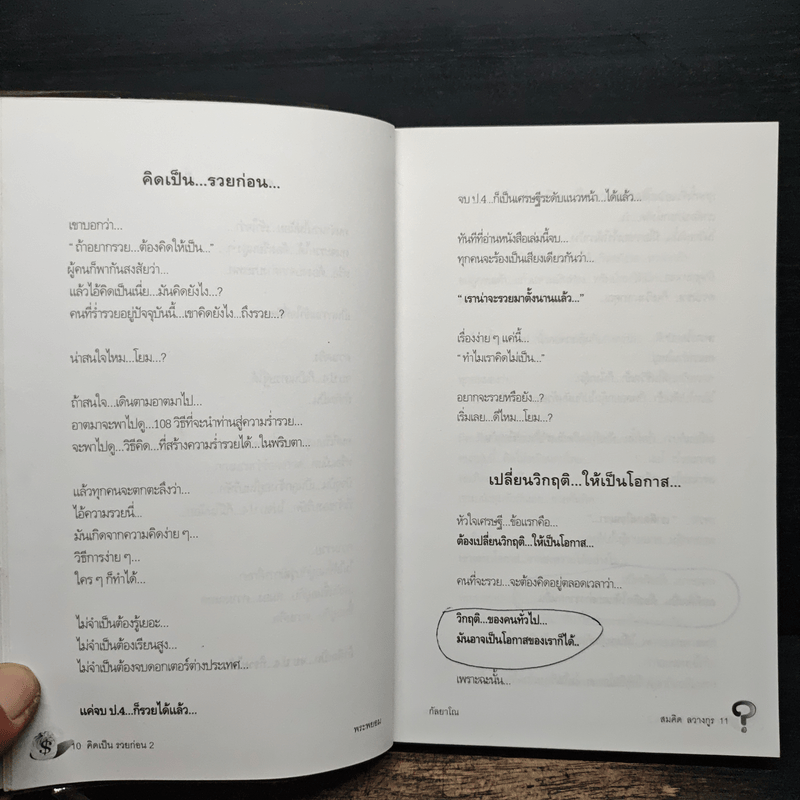 คิดเป็น...รวยก่อน...
เขาบอกว่า...
“ ถ้าอยากรวย...ต้องคิดให้เป็น...”
ผู้คนก็พากันสงสัยว่า...
แล้วไอ้คิดเป็นเนี่ย...มันคิดยังไง...?
คนที่ร่ำรวยอยู่ปัจจุบันนี้...เขาคิดยังไง...ถึงรวย...?
น่าสนใจไหม...โยม...?
ถ้าสนใจ...เดินตามอาตมาไป...
อาตมาจะพาไปดู...108 วิธีที่จะนำท่านสู่ความร่ำรวย...
จะพาไปดู...วิธีคิด...ที่สร้างความร่ำรวยได้...ในพริบตา...
แล้วทุกคนจะตกตะลึงว่า...
ไอ้ความรวยนี่...
มันเกิดจากความคิดง่าย ๆ...
วิธีการง่าย ๆ...
ใคร ๆ ก็ทำได้...
ไม่จำเป็นต้องรู้เยอะ...
ไม่จำเป็นต้องเรียนสูง...
ไม่จำเป็นต้องจบดอกเตอร์ต่างประเทศ...
แค่จบ ป.4...ก็รวยได้แล้ว...
พระพยอม
$
10 คิดเป็น รวยก่อน 2
จบ ป.4...ก็เป็นเศรษฐีระดับแนวหน้า...ได้แล้ว...
ทันทีที่อ่านหนังสือเล่มนี้จบ...
ทุกคนจะร้องเป็นเสียงเดียวกันว่า...
“ เราน่าจะรวยมาตั้งนานแล้ว...”
เรื่องง่าย ๆ แค่นี้...
“ ทำไมเราคิดไม่เป็น...”
อยากจะรวยหรือยัง...?
เริ่มเลย...ดีไหม...โยม...?
เปลี่ยนวิกฤติ...ให้เป็นโอกาส...
หัวใจเศรษฐี...ข้อแรกคือ...
ต้องเปลี่ยนวิกฤติ...ให้เป็นโอกาส...
คนที่จะรวย...จะต้องคิดอยู่ตลอดเวลาว่า...
วิกฤติ...ของคนทั่วไป...
มันอาจเป็นโอกาสของเราก็ได้..
เพราะฉะนั้น...
กัลยาโณ
สมคิด ลวางกูร 11
?